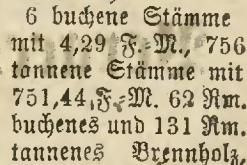 6 buchene Stämme
mit 4,29 F.-M., 756
tannene Stämme mit
751,44 F.-M. 62 Rm.
buchenes und 131 Rm.
tannenes Brennholz,